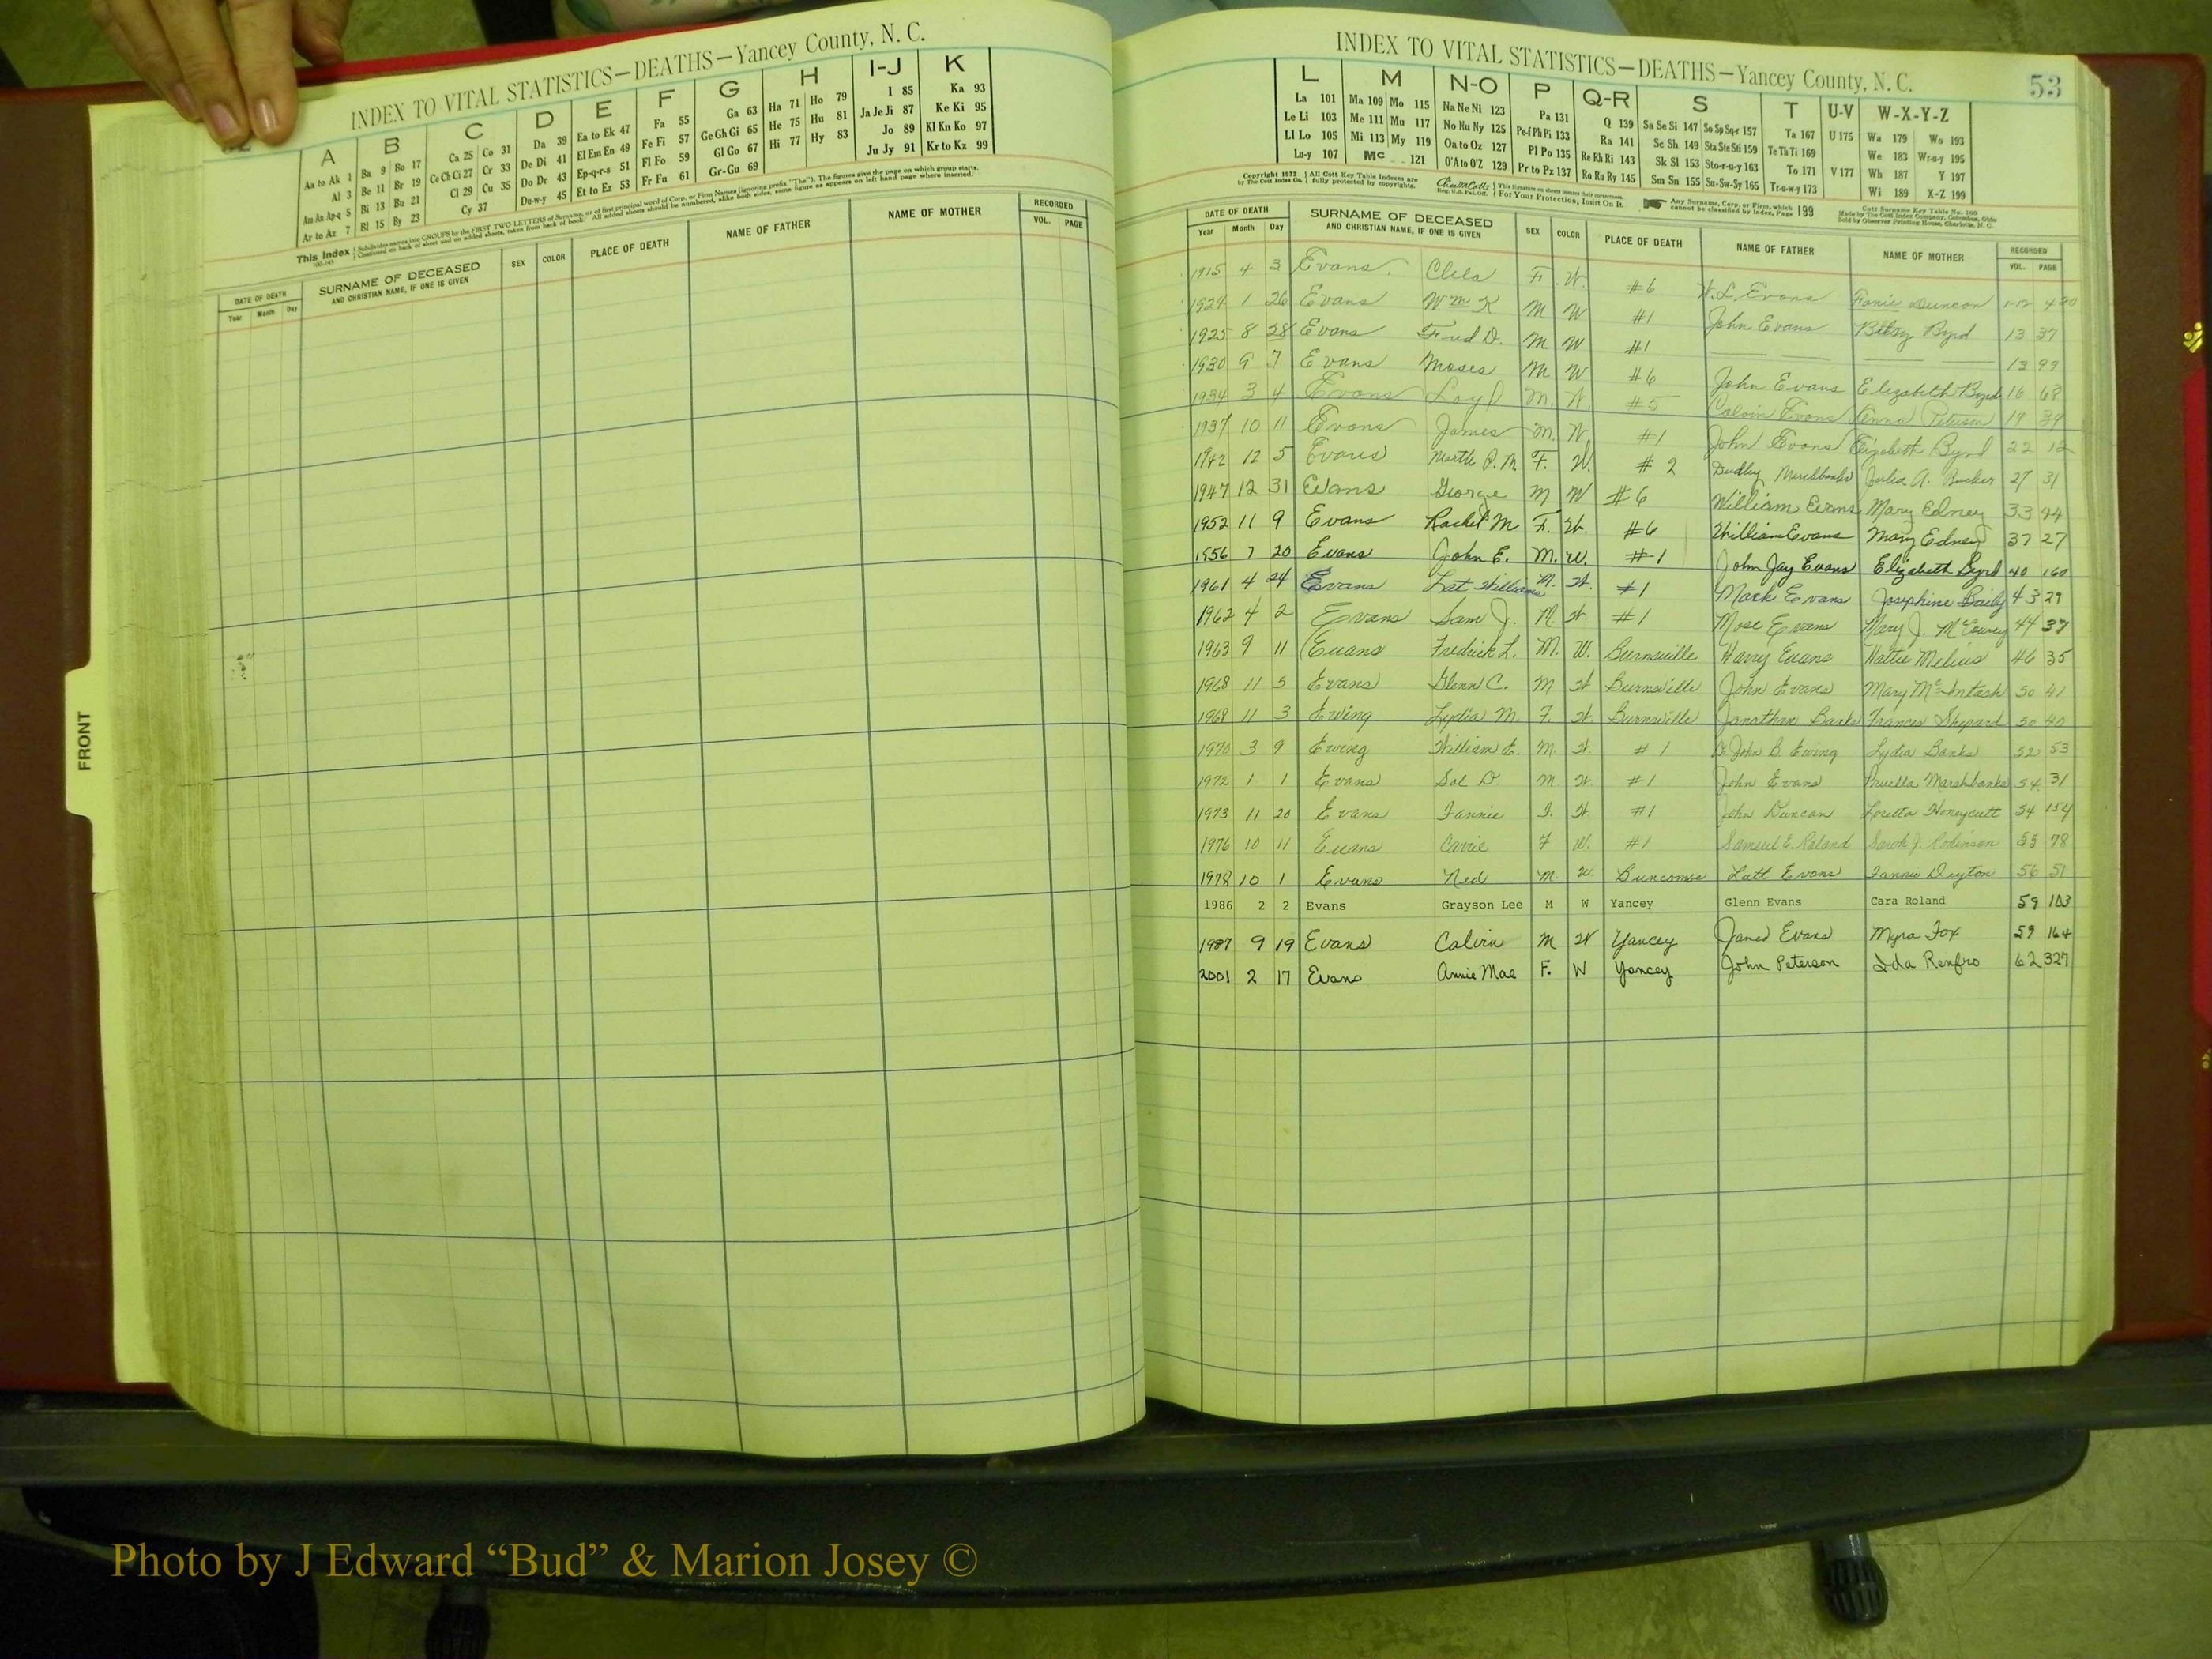 INDEX TO VITAL STATISTICS—DEATHS—Yancey County, N. C.
A B C D E F G H I-J K
Aa to Ak 1 Ba 9 Bo 17 Ca 25 Co 31 Da 39 Ea to Ek 47 Fa 55 Ga 63 Ha 71 Ho 79 I 85 Ka 93
Al 3 Be 11 Br 19 Ce Ch Ci 27 Cr 33 De Di 41 El Em En 49 Fe Fi 57 Ge Gh Gi 65 He 75 Hu 81 Ja Je Ji 87 Ke Ki 95
Am An Ap-q 5 Bi 13 Bu 21 Cl 29 Cu 35 Do Dr 43 Ep-q-r-s 51 Fl Fo 59 Gl Go 67 Hi 77 Hy 83 Jo 89 Kl Kn Ko 97
Ar to Az 7 Bl 15 By 23 Cy 37 Du-w-y 45 Et to Ez 53 Fr Fu 61 Gr-Gu 69 Ju Jy 91 Kr to Kz 99
This Index Subdivides names into GROUPS by the FIRST TWO LETTERS of Surname, or of first principal word of Corp. or Firm Names (ignoring prefix "The"). The figures give the page on which group starts.
Continued on back of sheet and on added sheets, taken from back of book. All added sheets should be numbered, alike both sides, same figure as appears on left hand page where inserted.
DATE OF DEATH SURNAME OF DECEASED SEX COLOR PLACE OF DEATH NAME OF FATHER NAME OF MOTHER RECORDED
Year Month Day AND CHRISTIAN NAME, IF ONE IS GIVEN VOL. PAGE
FRONT
INDEX TO VITAL STATISTICS—DEATHS—Yancey County, N. C. 53
L M N-O P Q-R S T U-V W-X-Y-Z
La 101 Ma 109 Mo 115 Na Ne Ni 123 Pa 131 Q 139 Sa Se Si 147 So Sp Sq-r 157 Ta 167 U 175 Wa 179 Wo 193
Le Li 103 Me 111 Mu 117 No Nu Ny 125 Pe-f Ph Pi 133 Ra 141 Sc Sh 149 Sta Ste Sti 159 Te Th Ti 169 We 183 Wr-u-y 195
Ll Lo 105 Mi 113 My 119 Oa to Oz 127 Pl Po 135 Re Rh Ri 143 Sk Sl 153 Sto-r-u-y 163 To 171 V 177 Wh 187 Y 197
Lu-y 107 Mc 121 O'A to O'Z 129 Pr to Pz 137 Ro Ru Ry 145 Sm Sn 155 Su-Sw-Sy 165 Tr-u-w-y 173 Wi 189 X-Z 199
Copyright 1932 All Cott Key Table Indexes are This signature on sheets insures their correctness. Any Surname, Corp. or Firm, which Cott Surname Key Table No. 100
by The Cott Index Co. fully protected by copyrights. For Your Protection, Insist On It. cannot be classified by Index, Page 199 Made by The Cott Index Company, Columbus, Ohio
Sold by Observer Printing House, Charlotte, N. C.
DATE OF DEATH SURNAME OF DECEASED SEX COLOR PLACE OF DEATH NAME OF FATHER NAME OF MOTHER RECORDED
Year Month Day AND CHRISTIAN NAME, IF ONE IS GIVEN VOL. PAGE
1915 4 3 Evans, F. W. #6 W.L. Evans Fanie Duncan
1924 1 26 Evans Wm K M W #1 John Evans Betsy Byrd 13 37
1925 8 28 Evans Fred D. M W #1 13 99
1930 9 7 Evans Moses M W #6 John Evans Elizabeth Byrd 16 68
1934 3 4 Evans Loyd M. W. #5 Calvin Evans Peterson 19 39
1937 10 11 Evans James M. W #1 John Evans Elizabeth Byrd 22 12
1942 12 5 Evans Myrtle P. M F. W. #2 Dudley Marshbanks Julia A. 27 31
1947 12 31 Evans George M W #6 William Evans Mary Edney 33 44
1952 11 9 Evans Rachel M F. W. #6 William Evans Mary Edney 37 27
1956 7 20 Evans John E. M. W. #1 John Jay Evans Elizabeth Byrd 40 160
1961 4 24 Evans Lat William M. W. #1 Mark Evans Josephine Baily 43 29
1962 4 2 Evans Sam J. M. W. #1 Mose Evans Mary J. 44 37
1963 9 11 Evans Fredrick L. M. W. Burnsville Harry Evans Hattie Melius 46 35
1968 11 5 Evans Glenn C. M W Burnsville John Evans Mary McIntosh 50 41
1968 11 3 Ewing Lydia M. F. W. Burnsville Jonathan Banks Frances Shepard 50 40
1970 3 9 Ewing William E. M. W. #1 John B Ewing Lydia Banks 52 53
1972 1 1 Evans Sol D. M W. #1 John Evans Pruella Marshbanks 54 31
1973 11 20 Evans Fannie F. W. #1 John Duncan Loretta Honeycutt 54 154
1976 10 11 Evans Carrie F W. #1 Samuel E. Roland Sarah J. Robinson 55 78
1978 10 1 Evans Ned M. W. Buncombe Latt Evans Fannie Deyton 56 51
1986 2 2 Evans Grayson Lee M W Yancey Glenn Evans Cara Roland 59 103
1987 9 19 Evans Calvin M W Yancey James Evans Myra Fox 59 164
2001 2 17 Evans Annie Mae F. W Yancey John Peterson Ida Renfro 62 327
Photo by J Edward “Bud” & Marion Josey ©